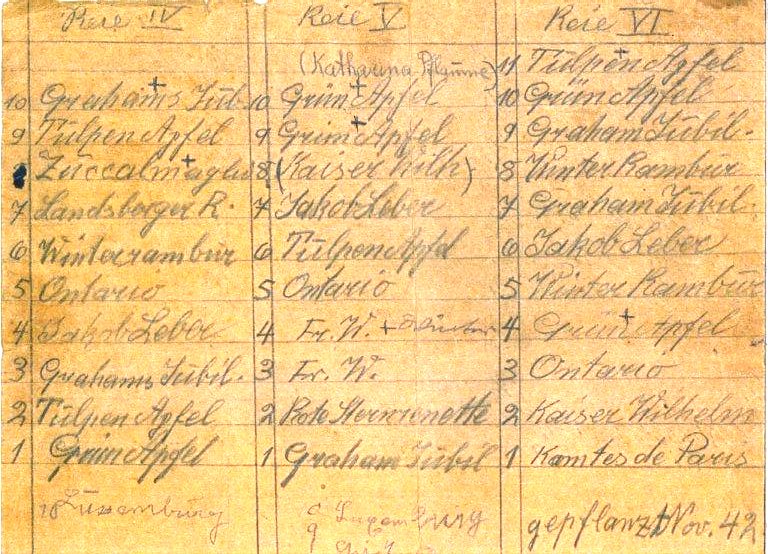 Reie IV Reie V Reie VI
(Katharina Pflaume) 11 Tulpen Apfel
10 Grahams Jub. 10 Grün Apfel 10 Grün Apfel
9 Tülpen Apfel 9 Grün Apfel 9 Graham Jübil.
8 Zuccalmaglio 8 (Kaiser Wilh) 8 Winter Rambur
7 Landsberger R. 7 Jakob Leber 7 Graham Jübil.
6 Winterrambur 6 Tülpen Apfel 6 Jakob Leber
5 Ontario 5 Ontario 5 Winter Rambur
4 Jakob Leber 4 Fr. W. + Winter 4 Grün Apfel
3 Grahams Jübil. 3 Fr. W. 3 Ontario
2 Tülpen Apfel 2 Rote 2 Kaiser Wilhelm
1 Grün Apfel 1 Graham Jübil 1 Komtes de Paris
Luxemburg 9 Luxemburg gepflanzt Nov. 42